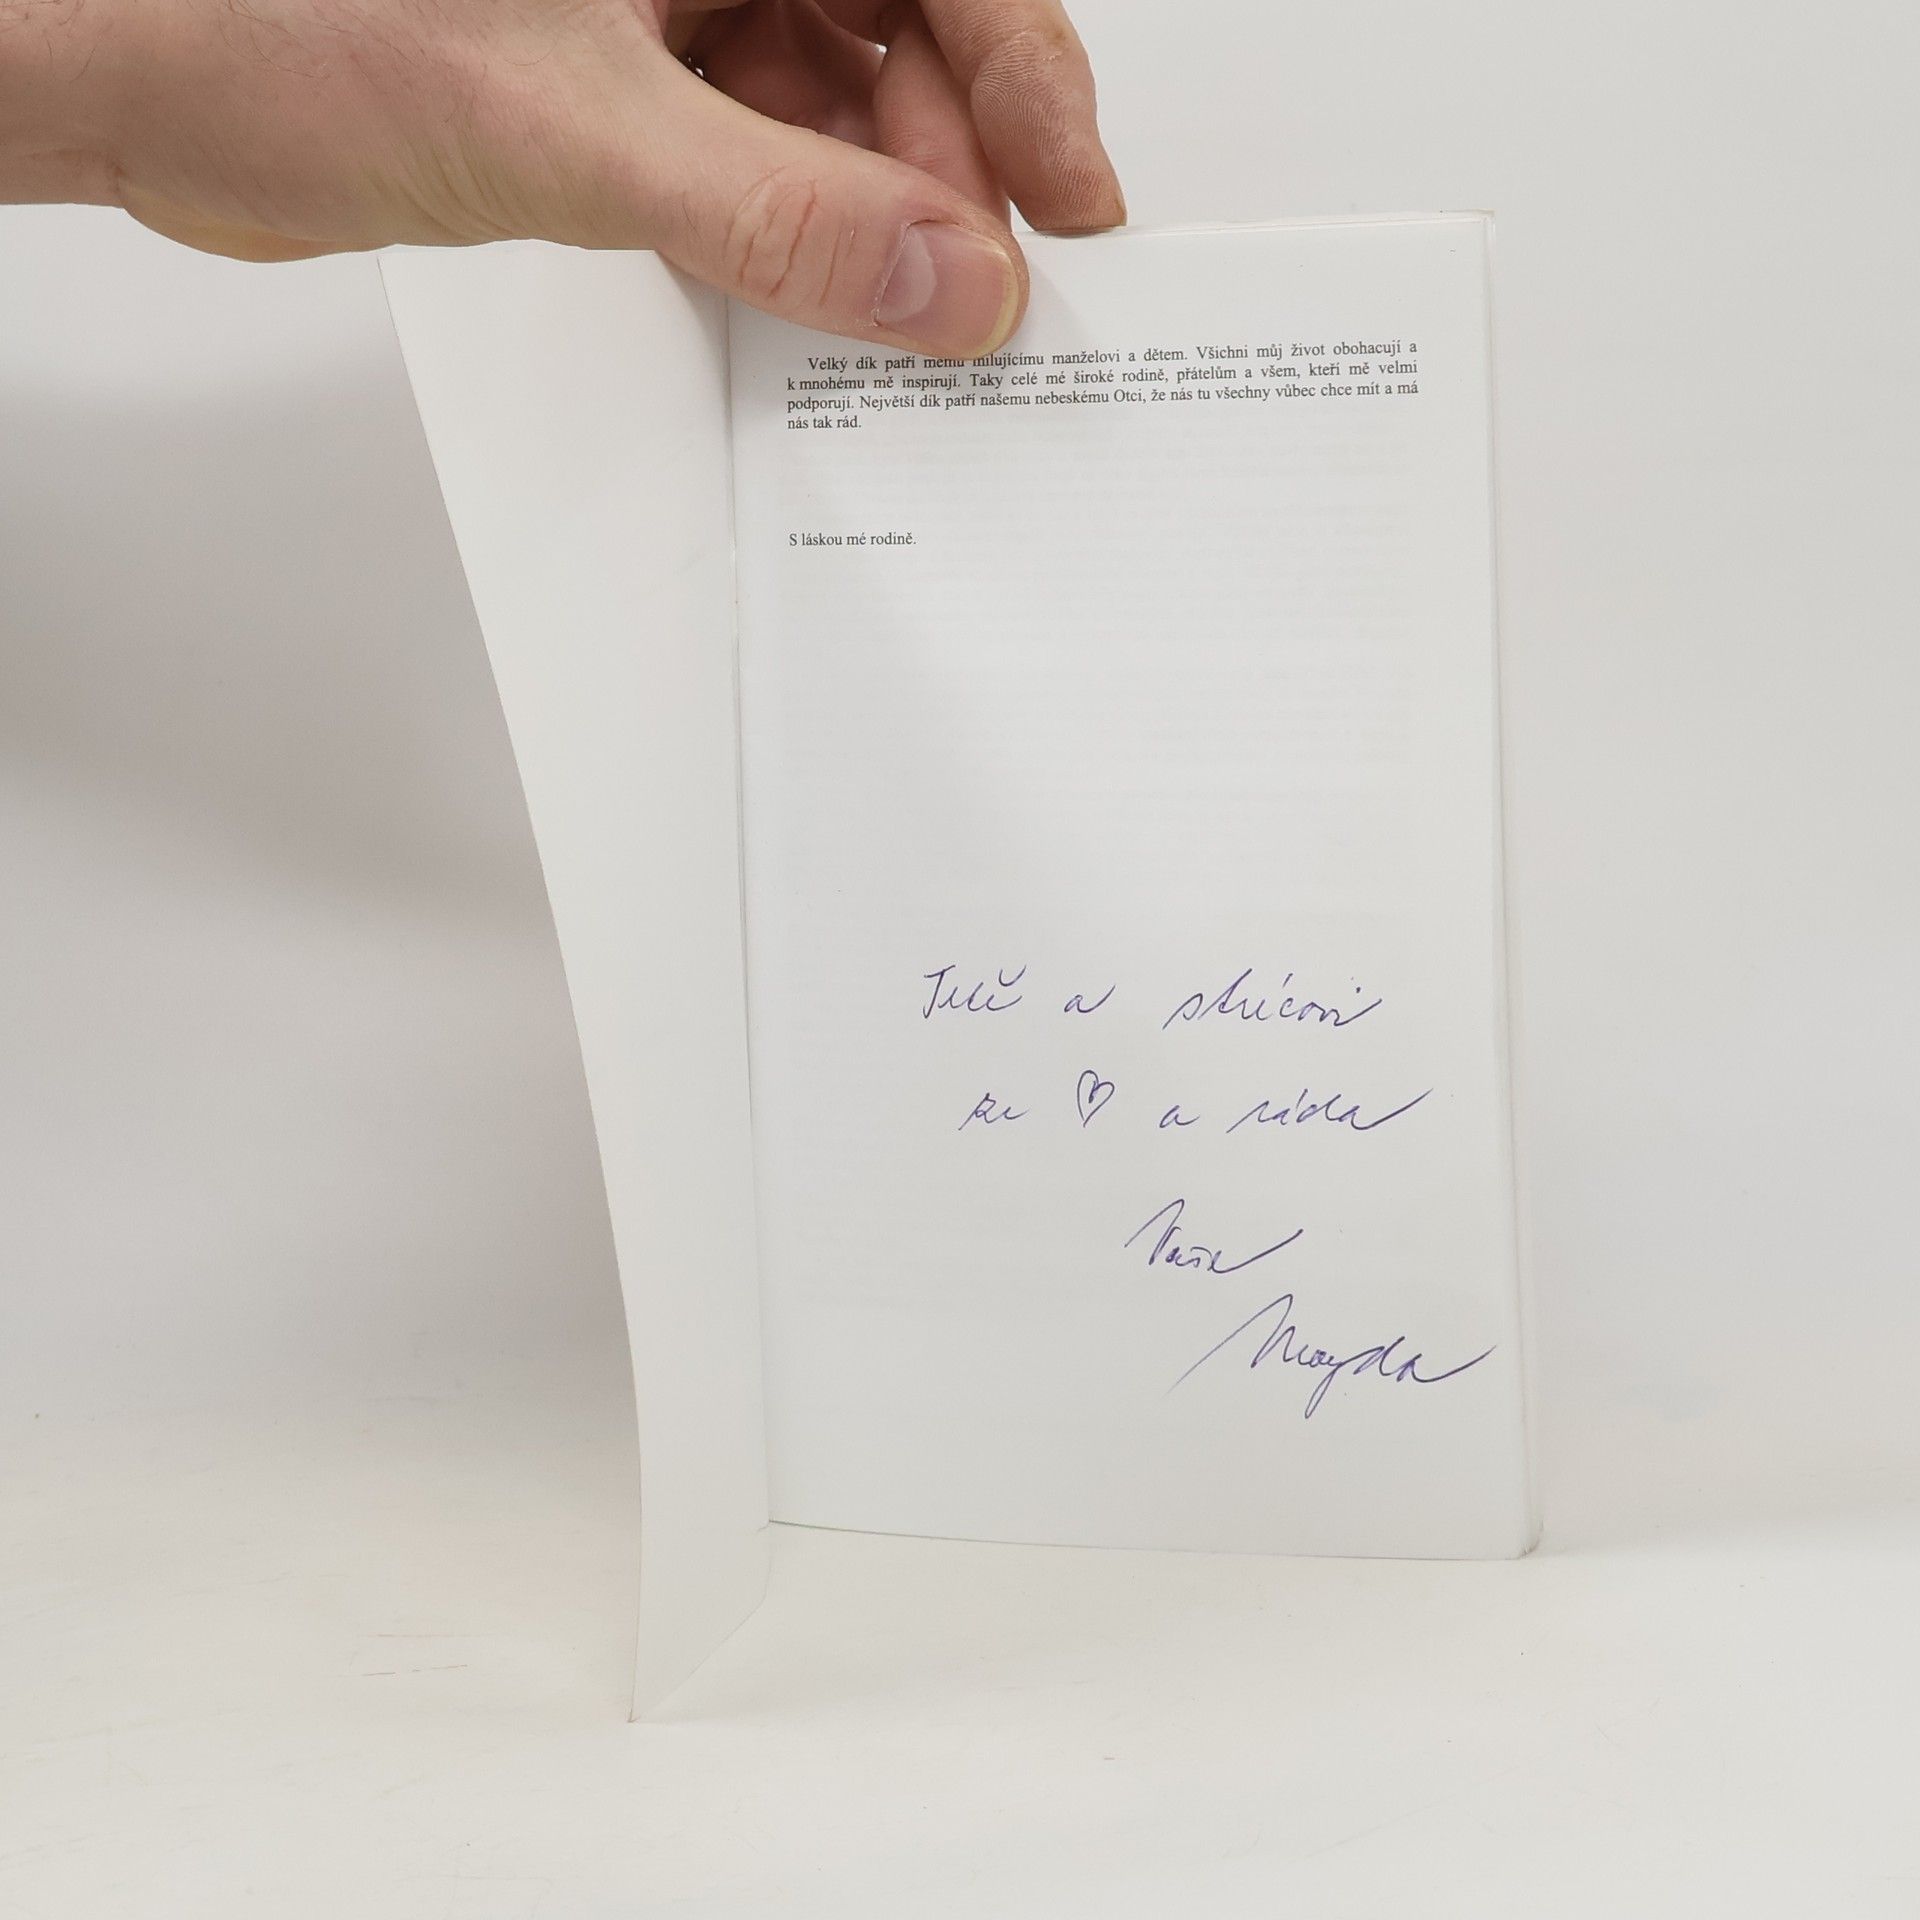 Velký dík patří mému milujícímu manželovi a dětem. Všichni můj život obohacují a
k mnohému mě inspirují. Taky celé mé široké rodině, přátelům a všem, kteří mě velmi
podporují. Největší dík patří našemu nebeskému Otci, že nás tu všechny vůbec chce mít a má
nás tak rád.
S láskou mé rodině.
Tetě a strýcovi
ze ♡ a ráda
Vaše
Magda